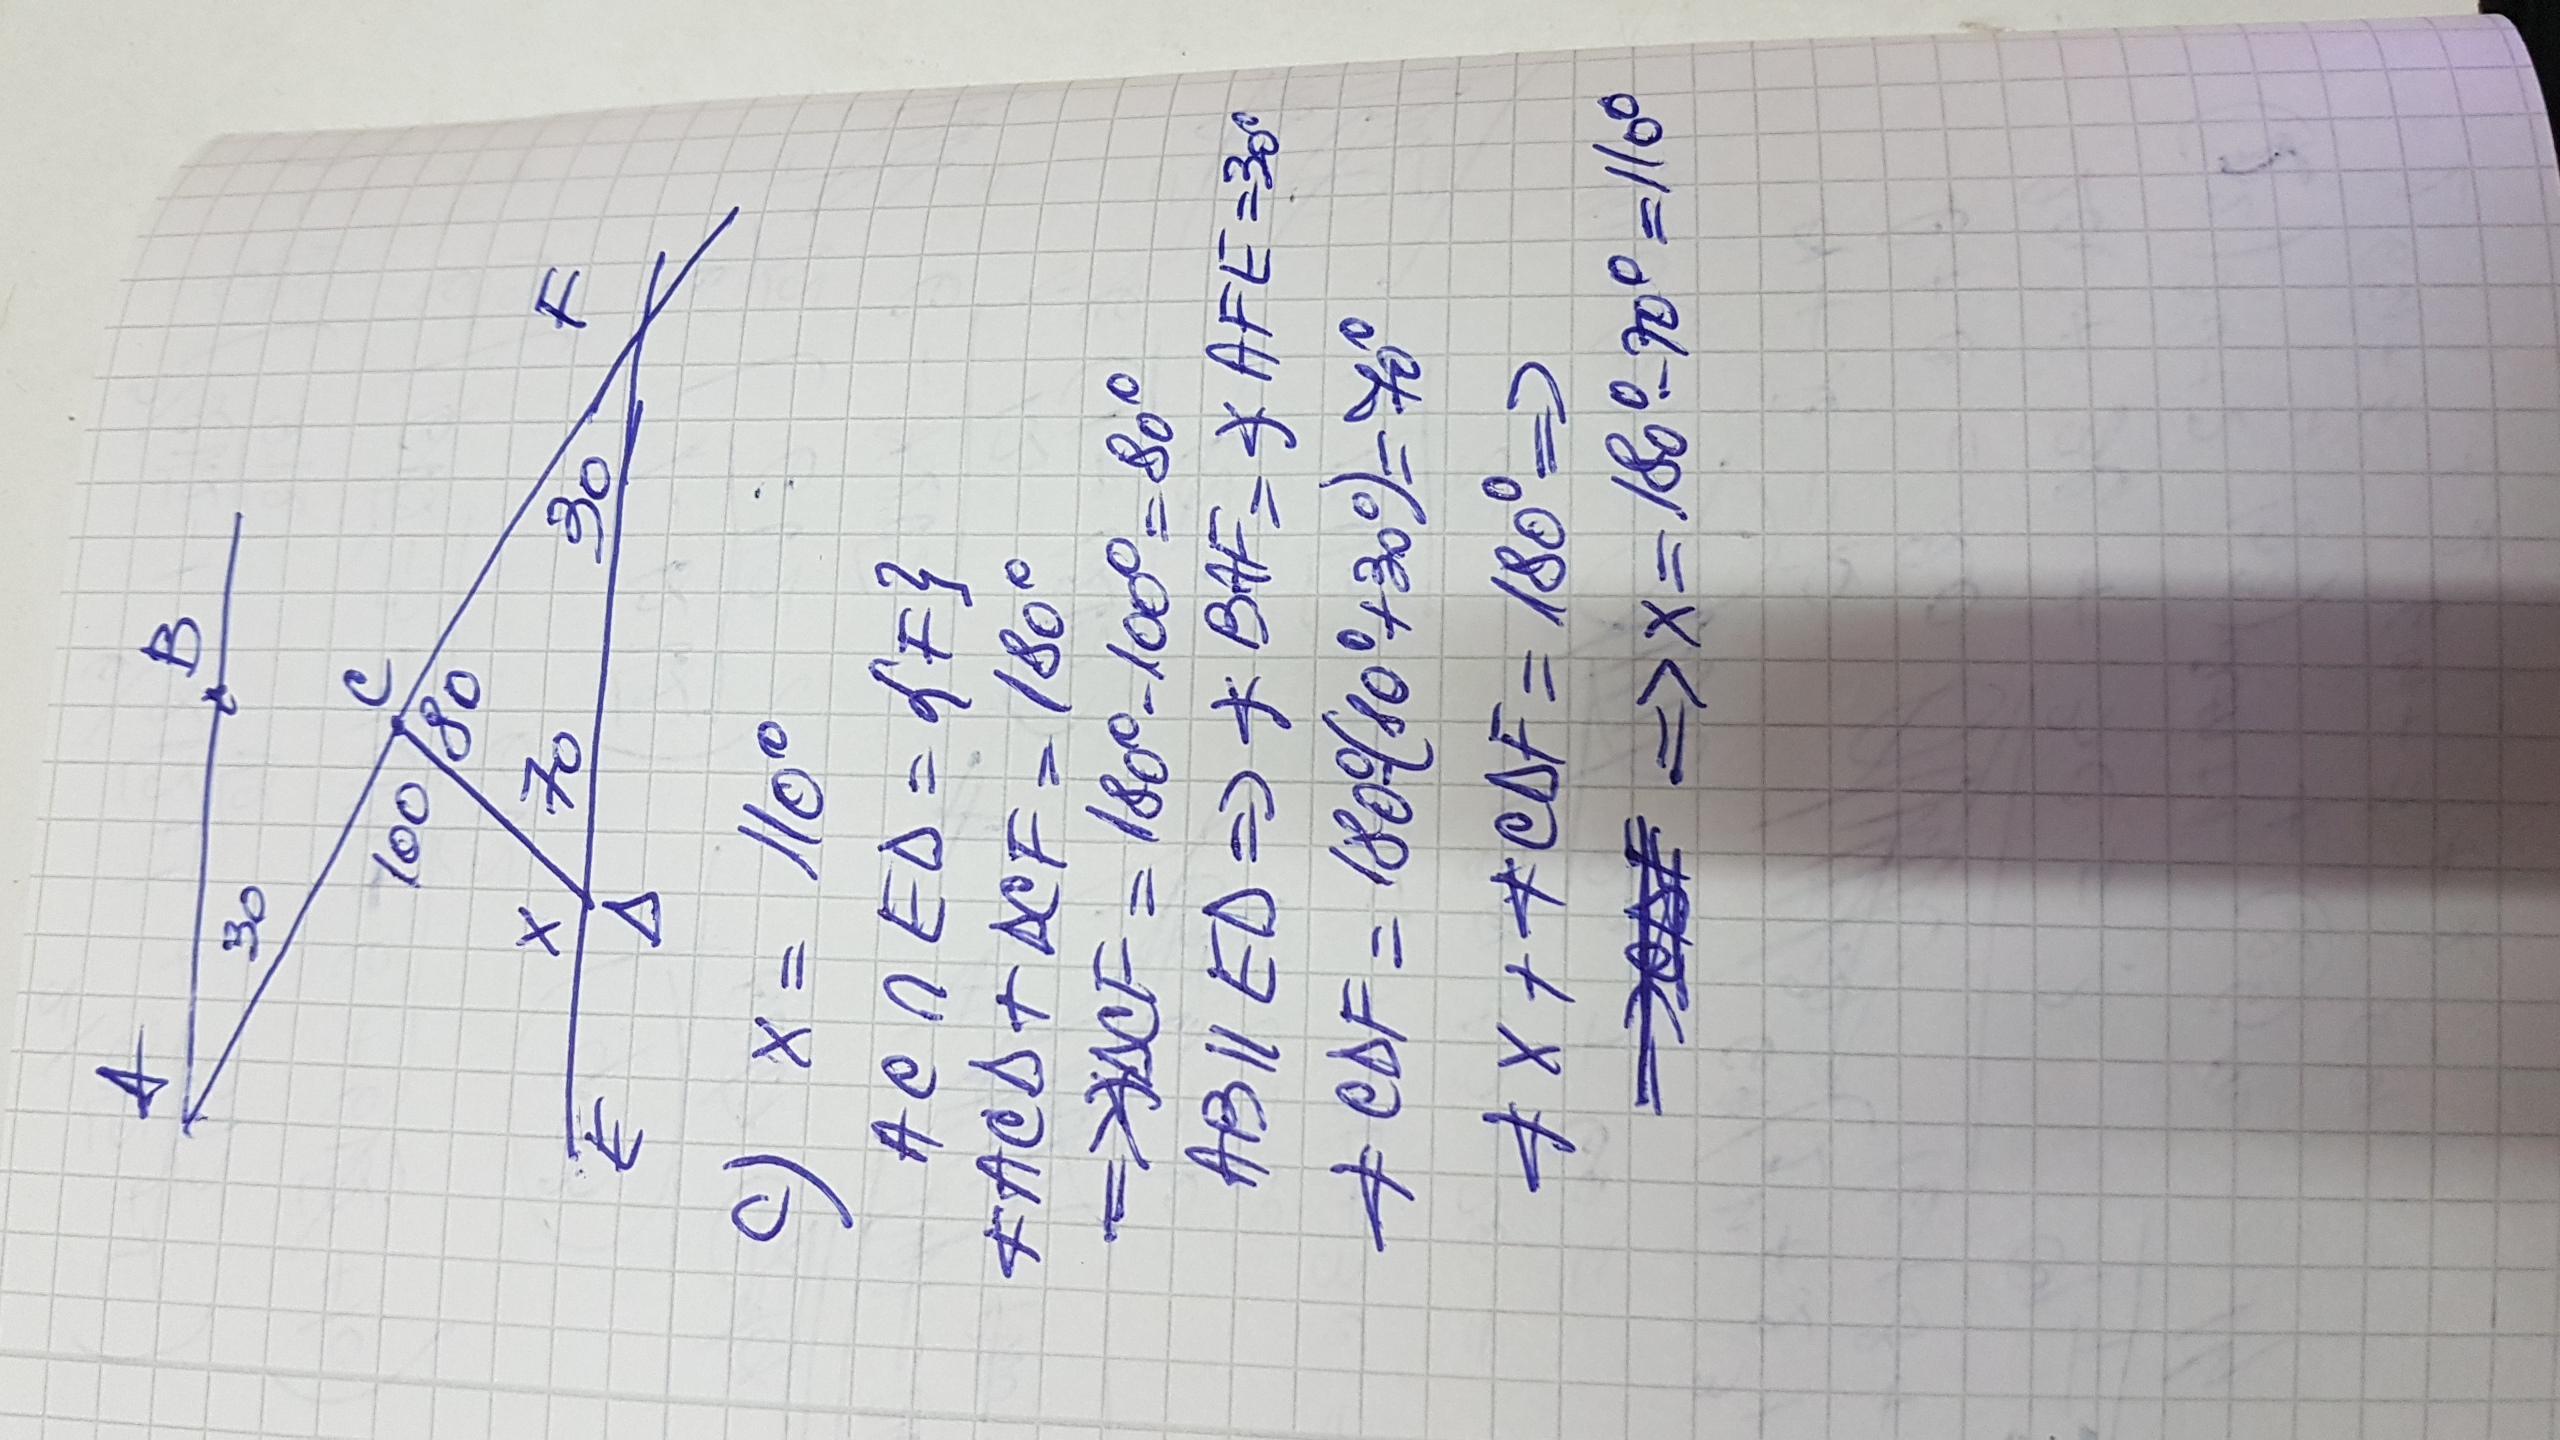 A
B
30
C
100
80
F
x
70
30
E
Δ
c) x = 110°
AC ∩ EΔ = {F}
∢ACΔ + ΔCF = 180°
=> ∢ΔCF = 180° - 100° = 80°
AB || EΔ => ∢BAF = ∢AFE = 30°
∢CΔF = 180° - (80° + 30°) = 70°
∢x + ∢CΔF = 180° =>
=> x = 180° - 70° = 110°